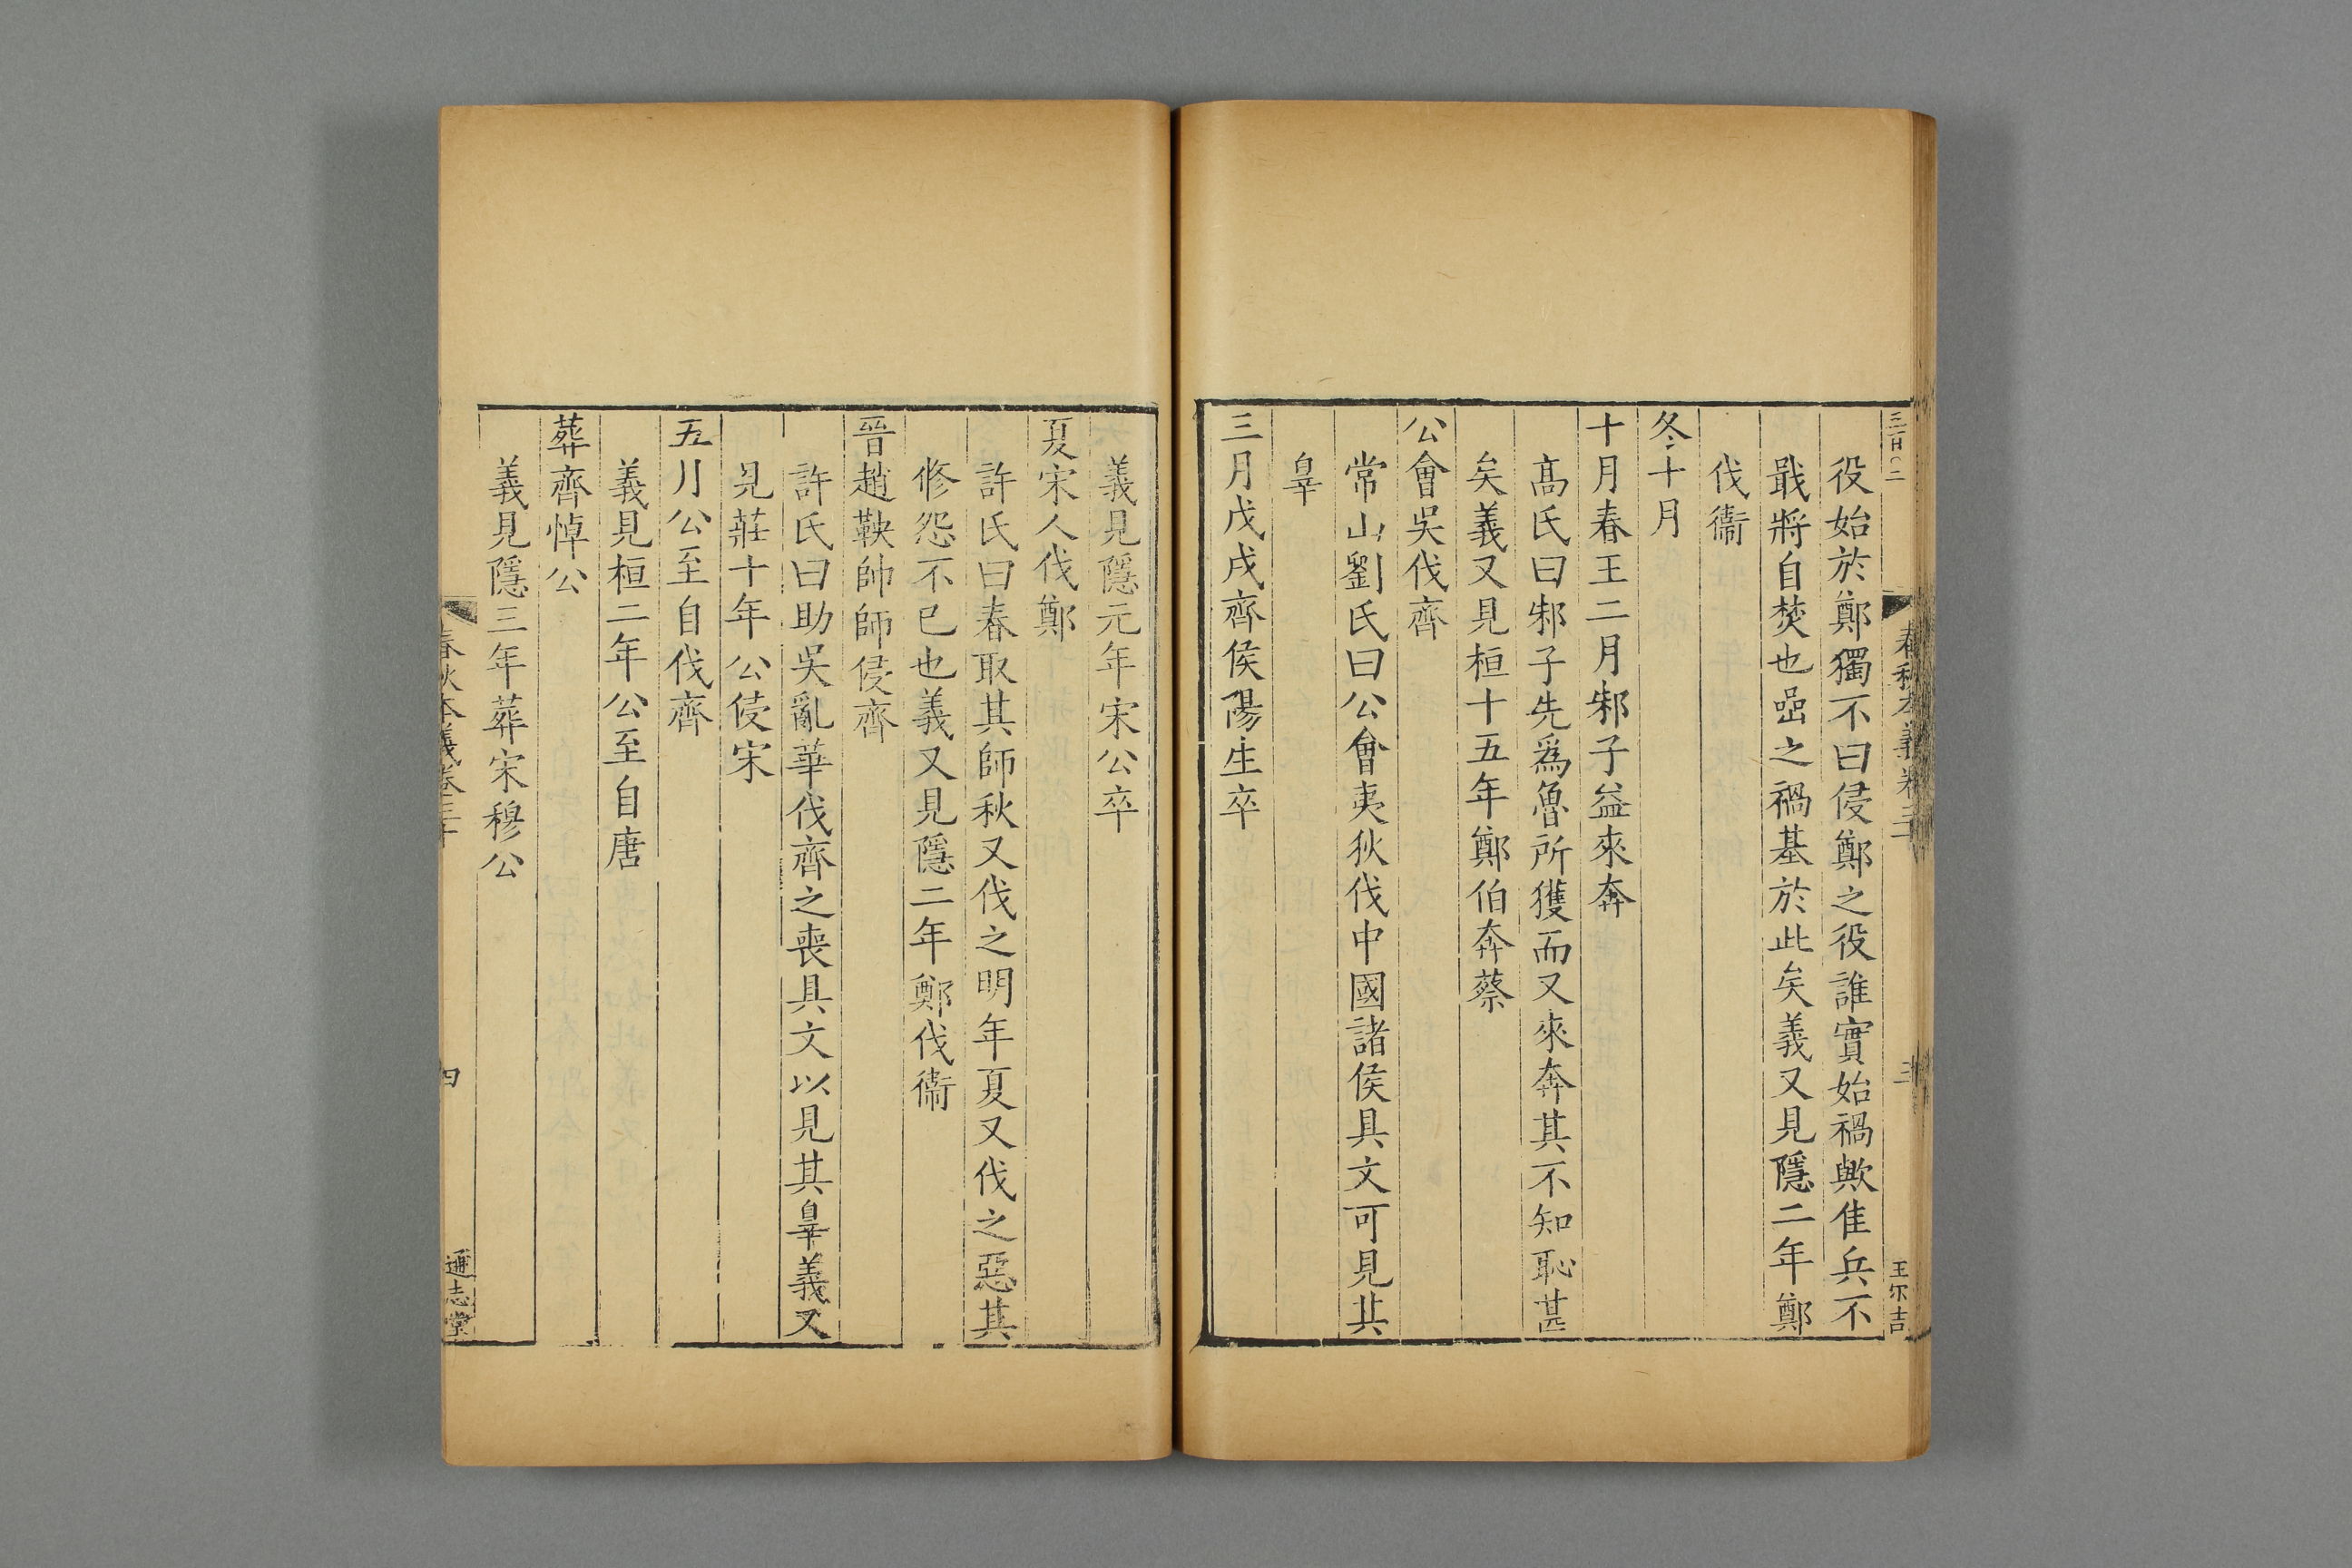 三百〇二
春秋本義卷三十
三
王尔吉
役始於鄭獨不曰侵鄭之役誰實始禍歟隹兵不
戢將自焚也嵒之禍基於此矣義又見隱二年鄭
伐衞
冬十月
十月春王二月邾子益來奔
髙氏曰邾子先爲魯所獲而又來奔其不知恥甚
矣義又見桓十五年鄭伯奔蔡
公會吳伐齊
常山劉氏曰公會夷狄伐中國諸侯具文可見其
辠
三月戊戌齊侯陽生卒
義見隱元年宋公卒
夏宋人伐鄭
許氏曰春取其師秋又伐之明年夏又伐之惡其
修怨不已也義又見隱二年鄭伐衞
晉趙鞅帥師侵齊
許氏曰助吳亂華伐齊之喪具文以見其辠義又
見莊十年公侵宋
五月公至自伐齊
義見桓二年公至自唐
葬齊悼公
義見隱三年葬宋穆公
春秋本義卷三十
四
通志堂